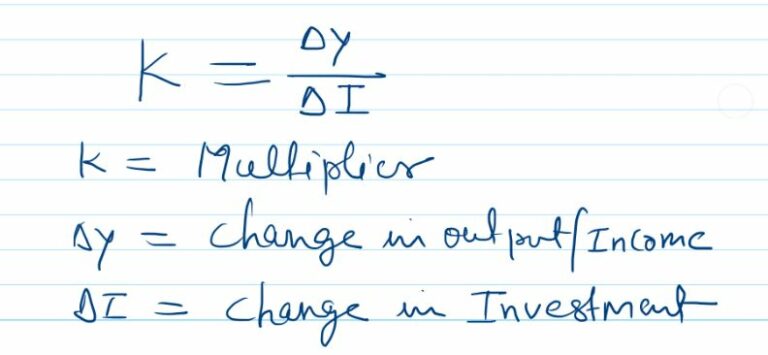 K = ΔY/ΔI
K = Multiplier
ΔY = Change in output/Income
ΔI = Change in Investment